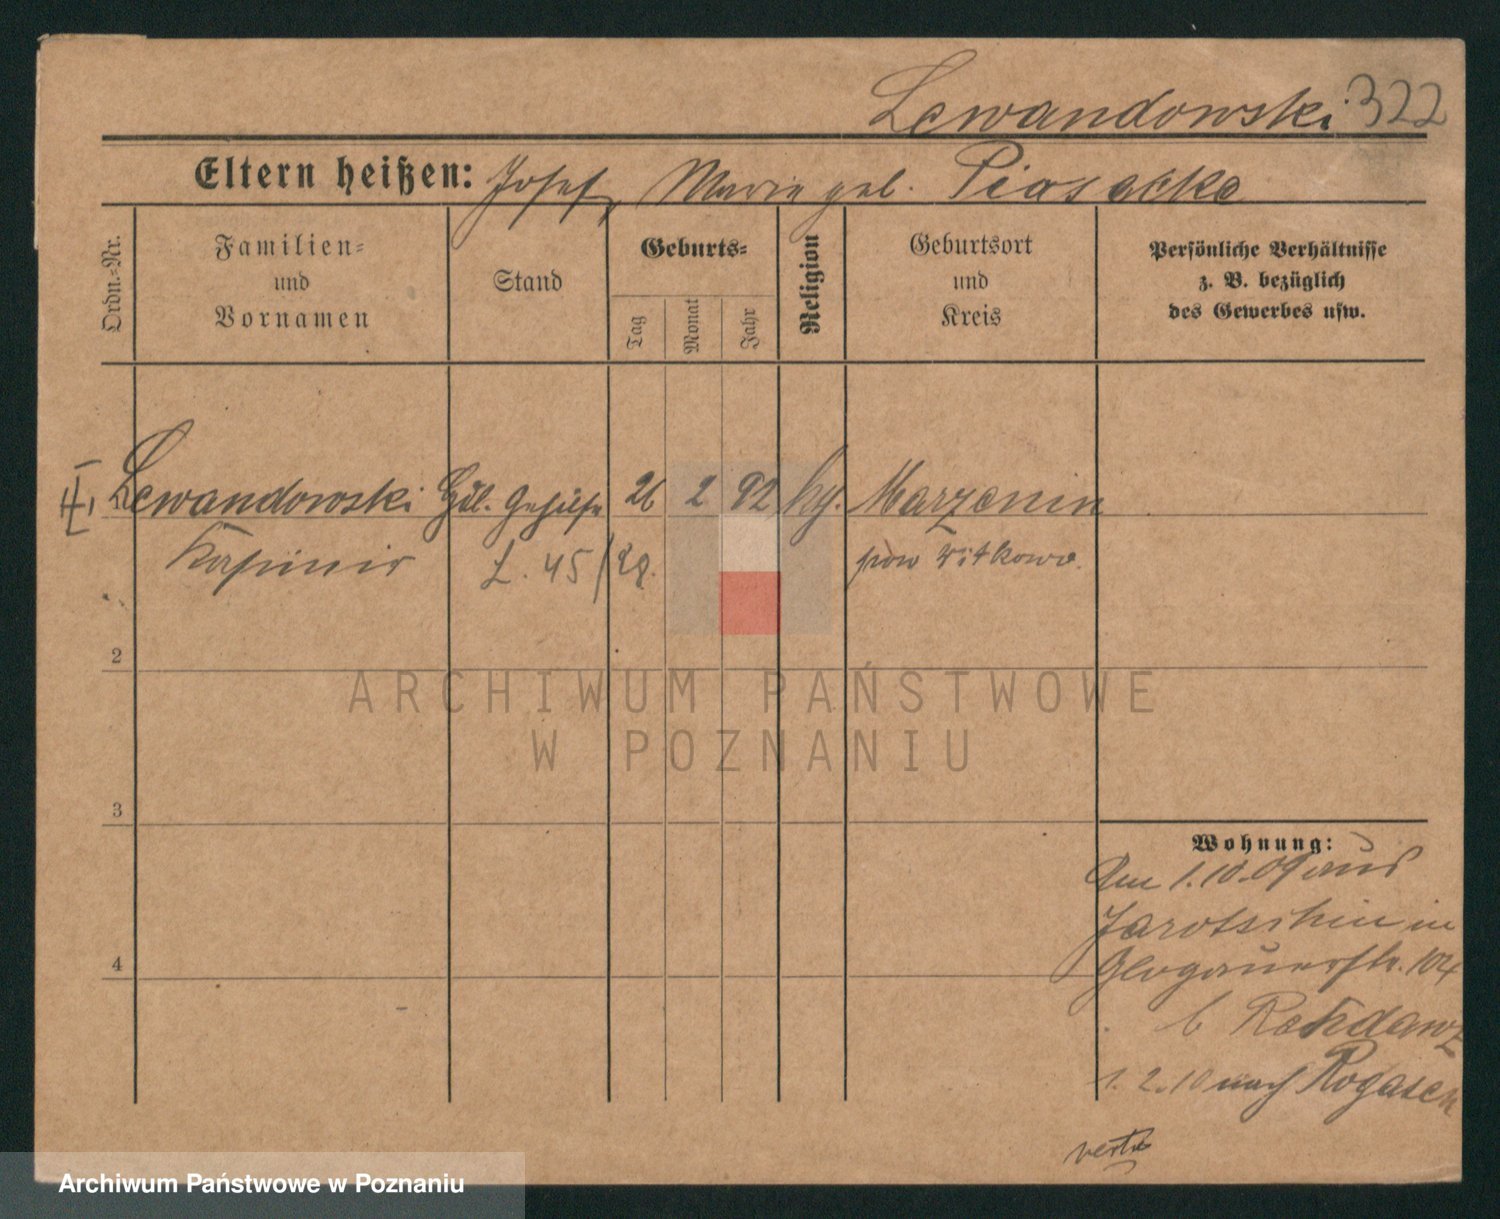 Lewandowski 322
Eltern heißen: Josef, Marie geb. Piasecka
Ordn.-Nr.
Familien-
und
Vornamen
Stand
Geburts-
Tag
Monat
Jahr
Religion
Geburtsort
und
Kreis
Persönliche Verhältnisse
z. B. bezüglich
des Gewerbes usw.
II, Lewandowski Hdl. Gehülfe 26 2 92 Marzenin
Kasimir L. 45/29. pow Witkowo.
2
3
4
ARCHIWUM PAŃSTWOWE
W POZNANIU
Wohnung:
Am 1.10.09 aus
Jarotschin in
Glogauerstr. 104
b
1. 2. 10 nach Rogasen
verte
Archiwum Państwowe w Poznaniu